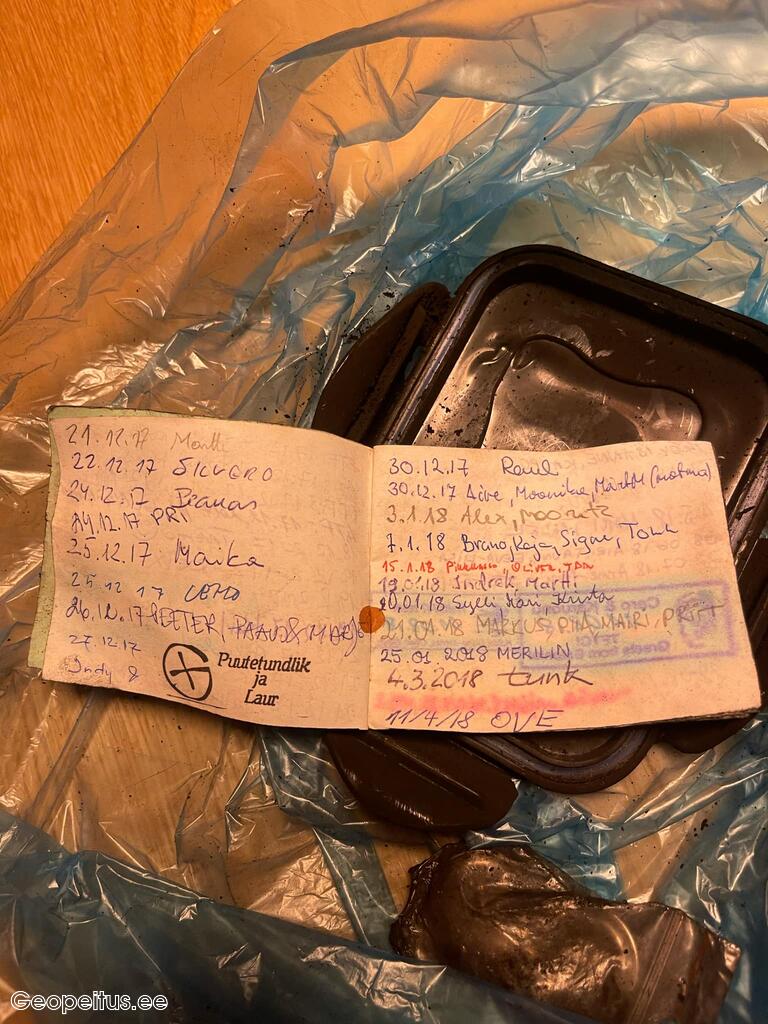 21.12.17 Martti
22.12.17 SILVERO
24.12.17
24.12.17 PRT
25.12.17 Maika
25 12 17
26.12.17 PEETER,
27.12.17
Indy &
Puutetundlik
ja
Laur
30.12.17 Raul
30.12.17 Aive, Moonika, Märten
3.1.18 Alex,
7.1.18 Bruno, Kaja, Signe, Tomm
15.1.18 OLIVER,
19.01.18 Indrek, Martti
20.01.18 Sylli, Kari, Krista
21.01.18 MARKUS, PIIA, MAIRI, PRIIT
25.01 2018 MERILIN
4.3.2018 tunk
11/4/18 OVE
Geopeitus.ee